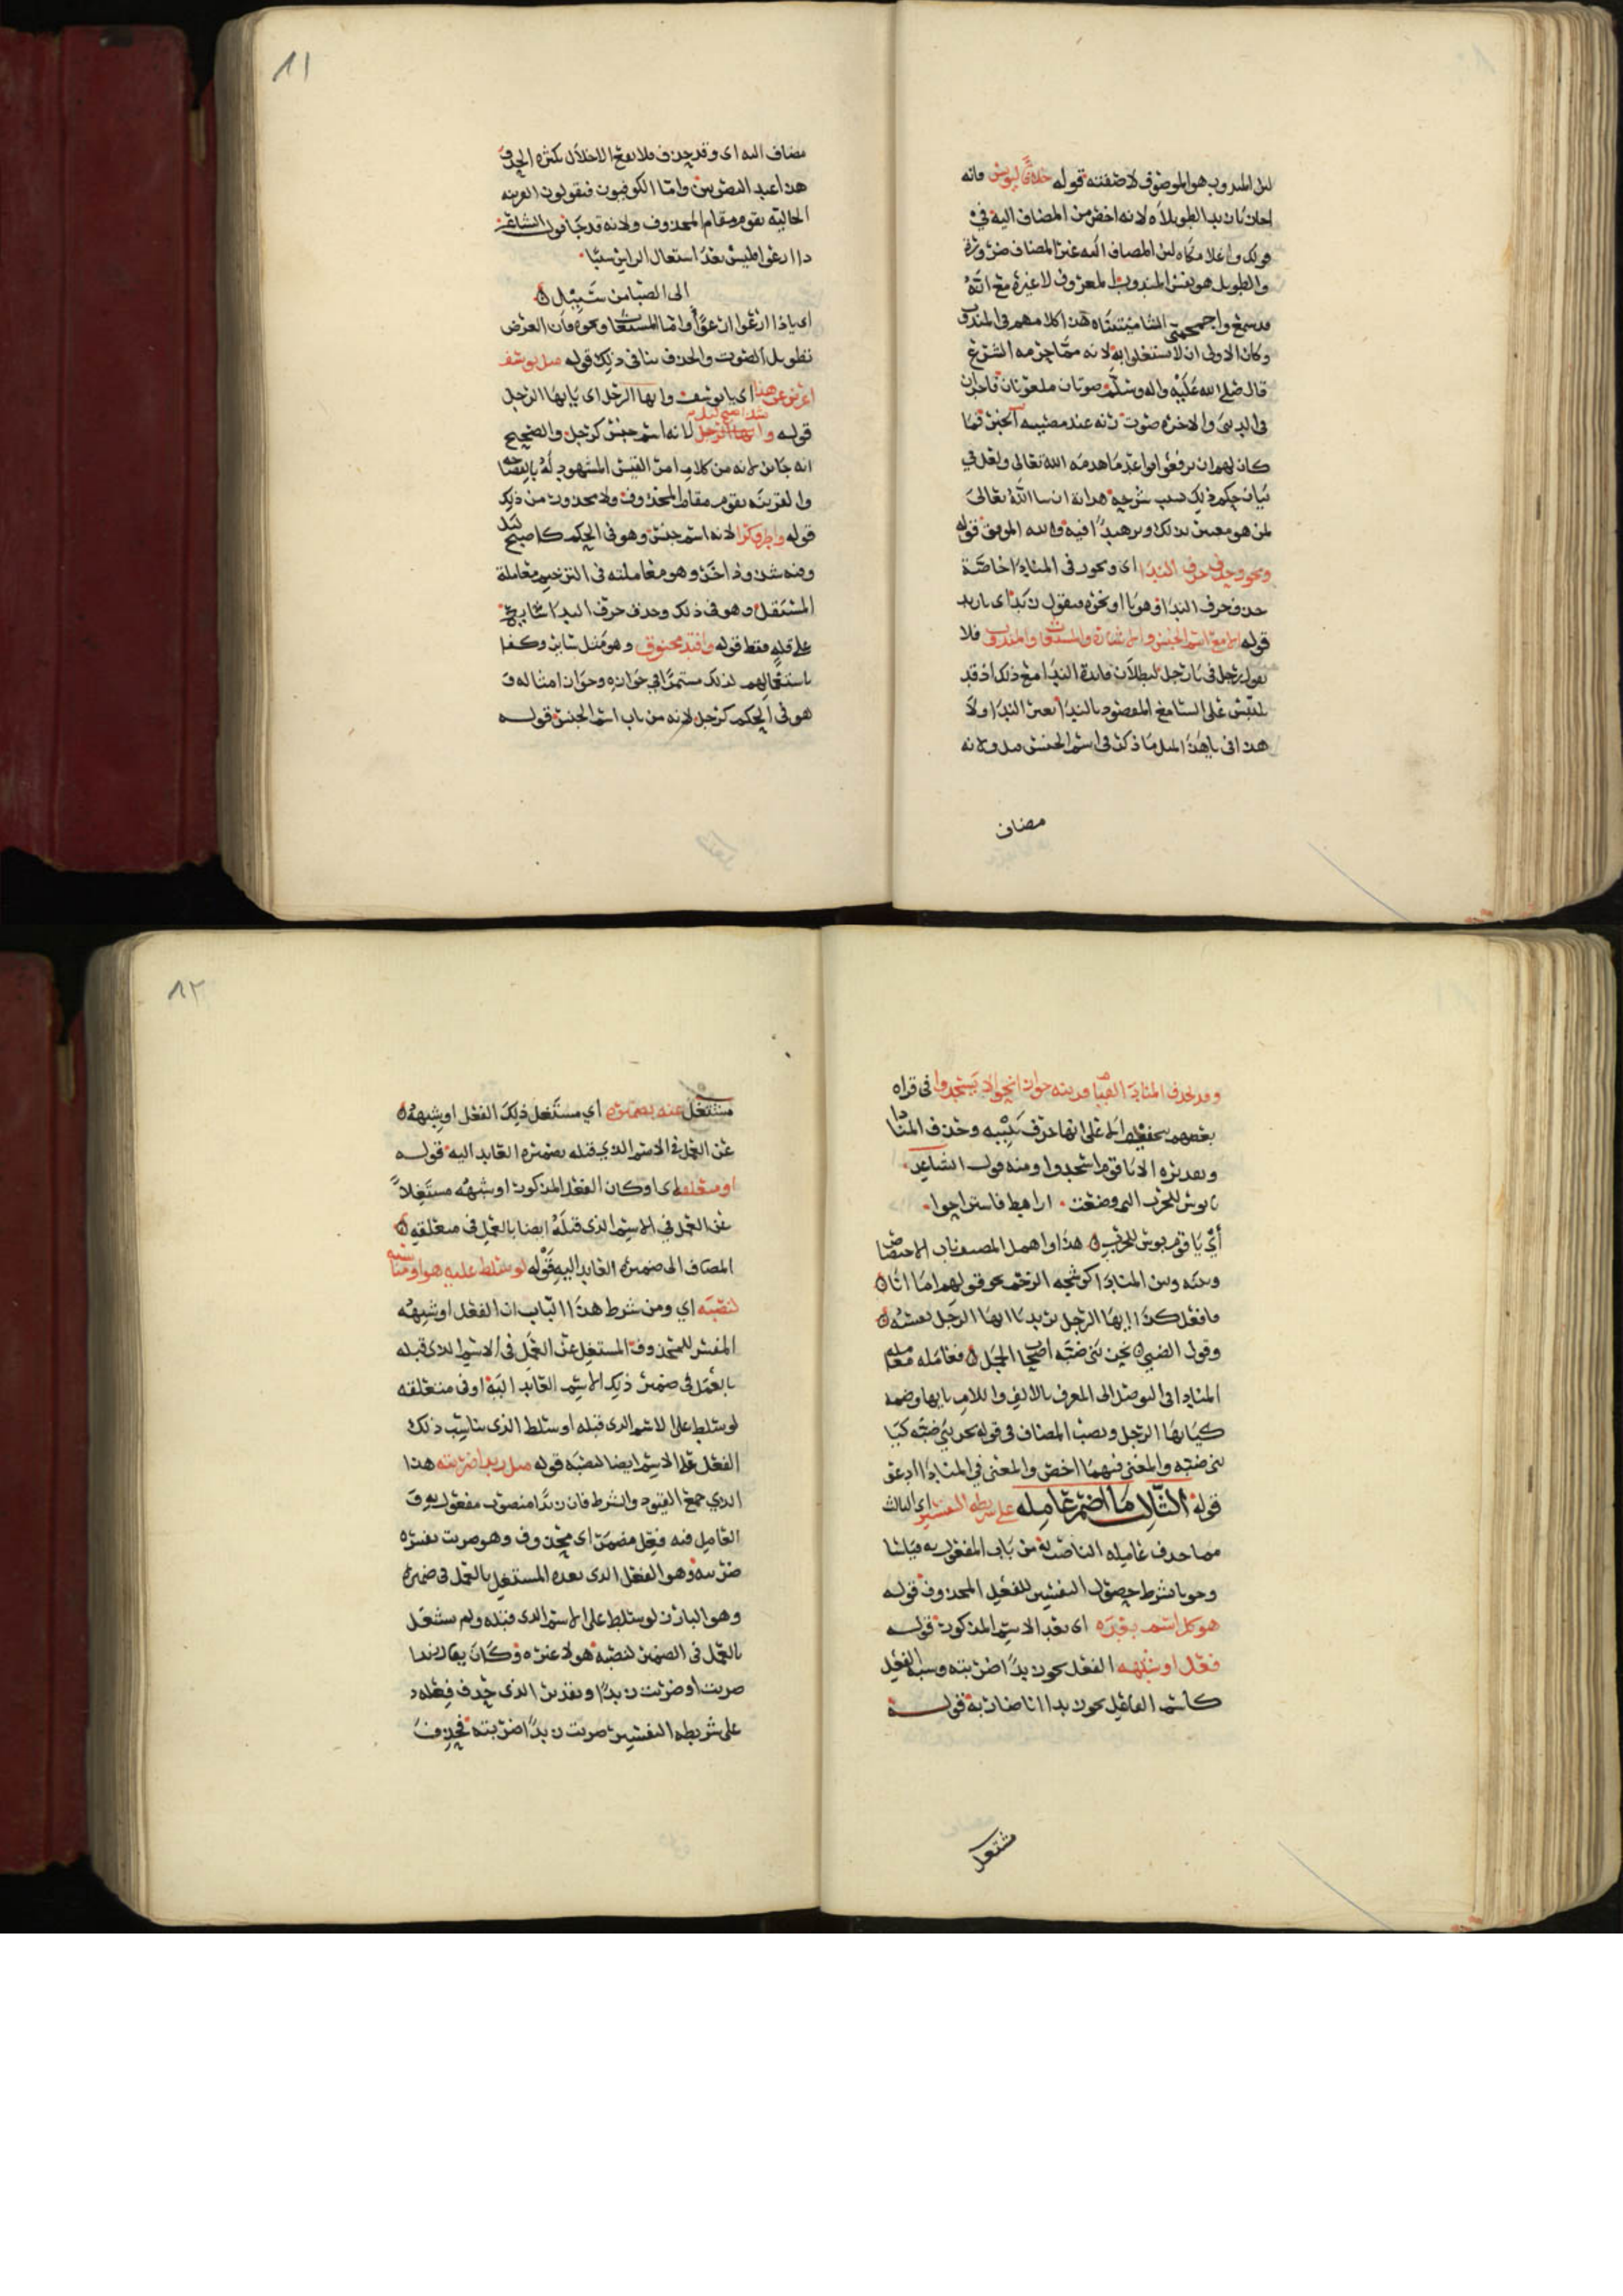 لان المندوب هو الموصوف لا صفته قوله خلافا ليونس فانه
اجاز يا زيد الطويلاه لانه اخص من المضاف اليه في
قولك وا غلامكاه لان المضاف اليه غير المضاف ضرورة
والطويل هو نفس المندوب المعروف لا غيره مع انه
قد سمع وا جمجمتي الشاميتيناه هذا كلامهم في المندوب
وكان الاولى ان لا يشتغلوا به لانه مما حرمه الشرع
قال صلى الله عليه واله وسلم صوتان ملعونان فاجران
في الدنيا والاخرة صوت رنه عند مصيبه الخبر فما
كان لهم ان يرفعوا قواعد ما هدمه الله تعالى ولعل في
بيان حكم ذلك سبب هدايه ان شا الله تعالى
لمن هو والله الموفق قوله
ويجوز حذف حرف الندا اي ويجوز في المنادا خاصة
حذف حرف الندا وهو يا او نحوه فيقول زيد اي يا زيد
قوله الا مع اسم الجنس والاشارة والمستغاث والمندوب فلا
يقول رجل في يا رجل لبطلان فايدة الندا مع ذلك اذ قد
يلتبس على السامع المقصود بالندا بعين الندا ولا
هذا في يا هذا لمثل ما ذكر في اسم الجنس ولانه
مضاف
١١
مضاف اليه اي وقد حذف فلا يصح الاخلال بكثرة الحذف
هذا عند البصريين واما الكوفيون فيقولون القرينه
الحاليه تقوم مقام المحذوف ولانه قد جا قول الشاعر
ذا ارعواء فليس بعد اشتعال الراس شيبا
الى الصبا من سبيل
اي ياذا ارعواء واما المستغاث ونحوه فان الغرض
تطويل الصوت والحذف ينافي ذلك قوله مثل يوسف
اعرض عن هذا اي يا يوسف وايها الرجل اي يا ايها الرجل
قوله وشذ اصبح ليل لانه اسم جنس كرجل والصحيح
انه جايز لانه من كلام امرئ القيس المشهود له بالفصاحه
والقرينه تقوم مقام المحذوف ولا محذور من ذلك
قوله واطرق كرا لانه اسم جنس وهو في الحكم كاصبح ليل
وفيه شذوذ اخر وهو معاملته في الترخيم معاملة
المستقل وهو في ذلك وحذف حرف الندا
فقط قوله وافتد مخنوق وهو مثل سابر وكفا
باستعمالهم لذلك مستمرا في جوازه وجواز امثاله و
هو في الحكم كرجل لانه من باب اسم الجنس قوله
وقد يحذف المنادى لقيام قرينه جوازا نحو الا يسجدوا في قراه
بعضهم بتخفيف الا على انها حرف تنبيه وحذف المنادا
وتقديره الا يا قوم اسجدوا ومنه قول الشاعر
يا بوس للحرب التي وضعت اراهط فاستراحوا
اي يا قوم بوس للحرب هذا واهمل المصنف باب الاختصاص
وبينه وبين المنادا نحو قولهم اما انا
فافعل كذا ايها الرجل يريد يا ايها الرجل نفسه
وقول الضبي نحن بني ضبه اصحاب الجمل فعامله معامله
المنادا في التوصل الى المعرف بالالف واللام بايها وضمه
كيا ايها الرجل ونصب المضاف في قوله نحن بني ضبه كيا
بني ضبه والمعنى فيهما اخص والمعنى في المنادا ادعو
قوله الثالث ما اضمر عامله على شريطه التفسير اي الثالث
مما حذف عامله الناصب له من باب المفعول به قياسا
وجوبا بشرط حصول التفسير للفعل المحذوف قوله
هو كل اسم بعده اي بعد الاسم المذكور قوله
فعل او شبهه الفعل نحو زيدا ضربته وشبه الفعل
كاسم الفاعل نحو زيدا انا ضاربه قوله
مشتغل
١٢
مشتغل عنه بضميره اي مشتغل ذلك الفعل او شبهه
عن العمل في الاسم الذي قبله بضميره العايد اليه قوله
او متعلقه اي او كان الفعل المذكور او شبهه مشتغلا
عن العمل في الاسم الذي قبله ايضا بالعمل في متعلقه
المضاف الى ضميره العايد اليه قوله لو سلط عليه هو او مناسبه
لنصبه اي ومن شرط هذا الباب ان الفعل او شبهه
المفسر للمحذوف المشتغل عن العمل في الاسم الذي قبله
بالعمل في ضمير ذلك الاسم العايد اليه او في متعلقه
لو سلط على الاسم الذي قبله او سلط الذي يناسب ذلك
الفعل على الاسم ايضا لنصبه قوله مثل زيدا ضربته هذا
الذي جمع القيود والشرط فان زيدا منصوب مفعول به و
العامل فيه فعل مضمر اي محذوف وهو ضربت يفسره
ضربته وهو الفعل الذي بعده المشتغل بالعمل في ضميره
وهو البارز لو سلط على الاسم الذي قبله ولم يشتغل
بالعمل في الضمير لنصبه هو لا غيره وكان يقال زيدا
ضربت او ضربت زيدا وتقدير الذي حذف فعله
على شريطه التفسير ضربت زيدا ضربته فحذف